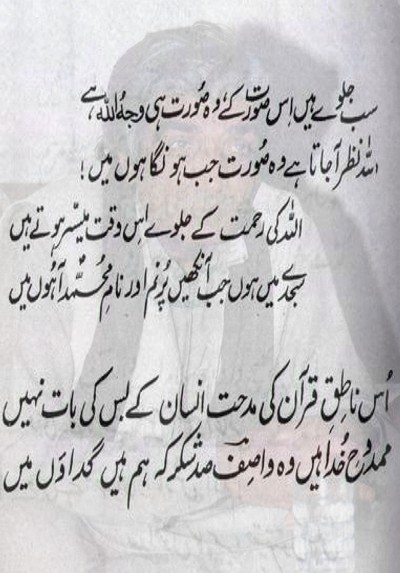 سب جلوے ہیں اِس صُورت کے، وہ صُورت ہی وجہُ اللہ ہے
اللہ نظر آ جاتا ہے وہ صُورت جب ہو نگاہوں میں!
اللہ کی رحمت کے جلوے اس وقت میسّر ہوتے ہیں
سجدے میں ہوں جب آنکھیں پُرنم اور نامِ محمدؐ آہوں میں
اُس ناطقِ قرآن کی مدحت انسان کے بس کی بات نہیں
ممدوحِ خُدا ہیں وہ واصفؔ صد شکر کہ ہم ہیں گداؤں میں